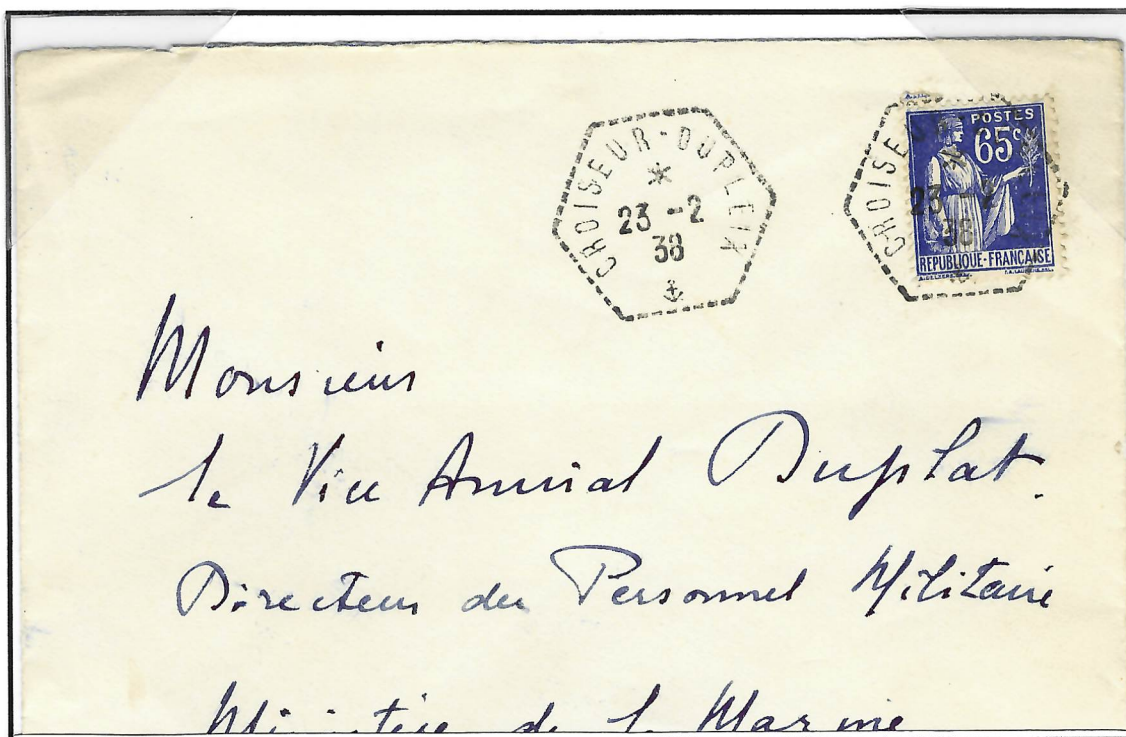 CROISEUR-DUPLEIX
23 -2
38
CROISEU
23 -2
38
POSTES
65c
REPUBLIQUE-FRANÇAISE
Monsieur
le Vice Amiral Duplat.
Directeur du Personnel Militaire
Ministère de la Marine